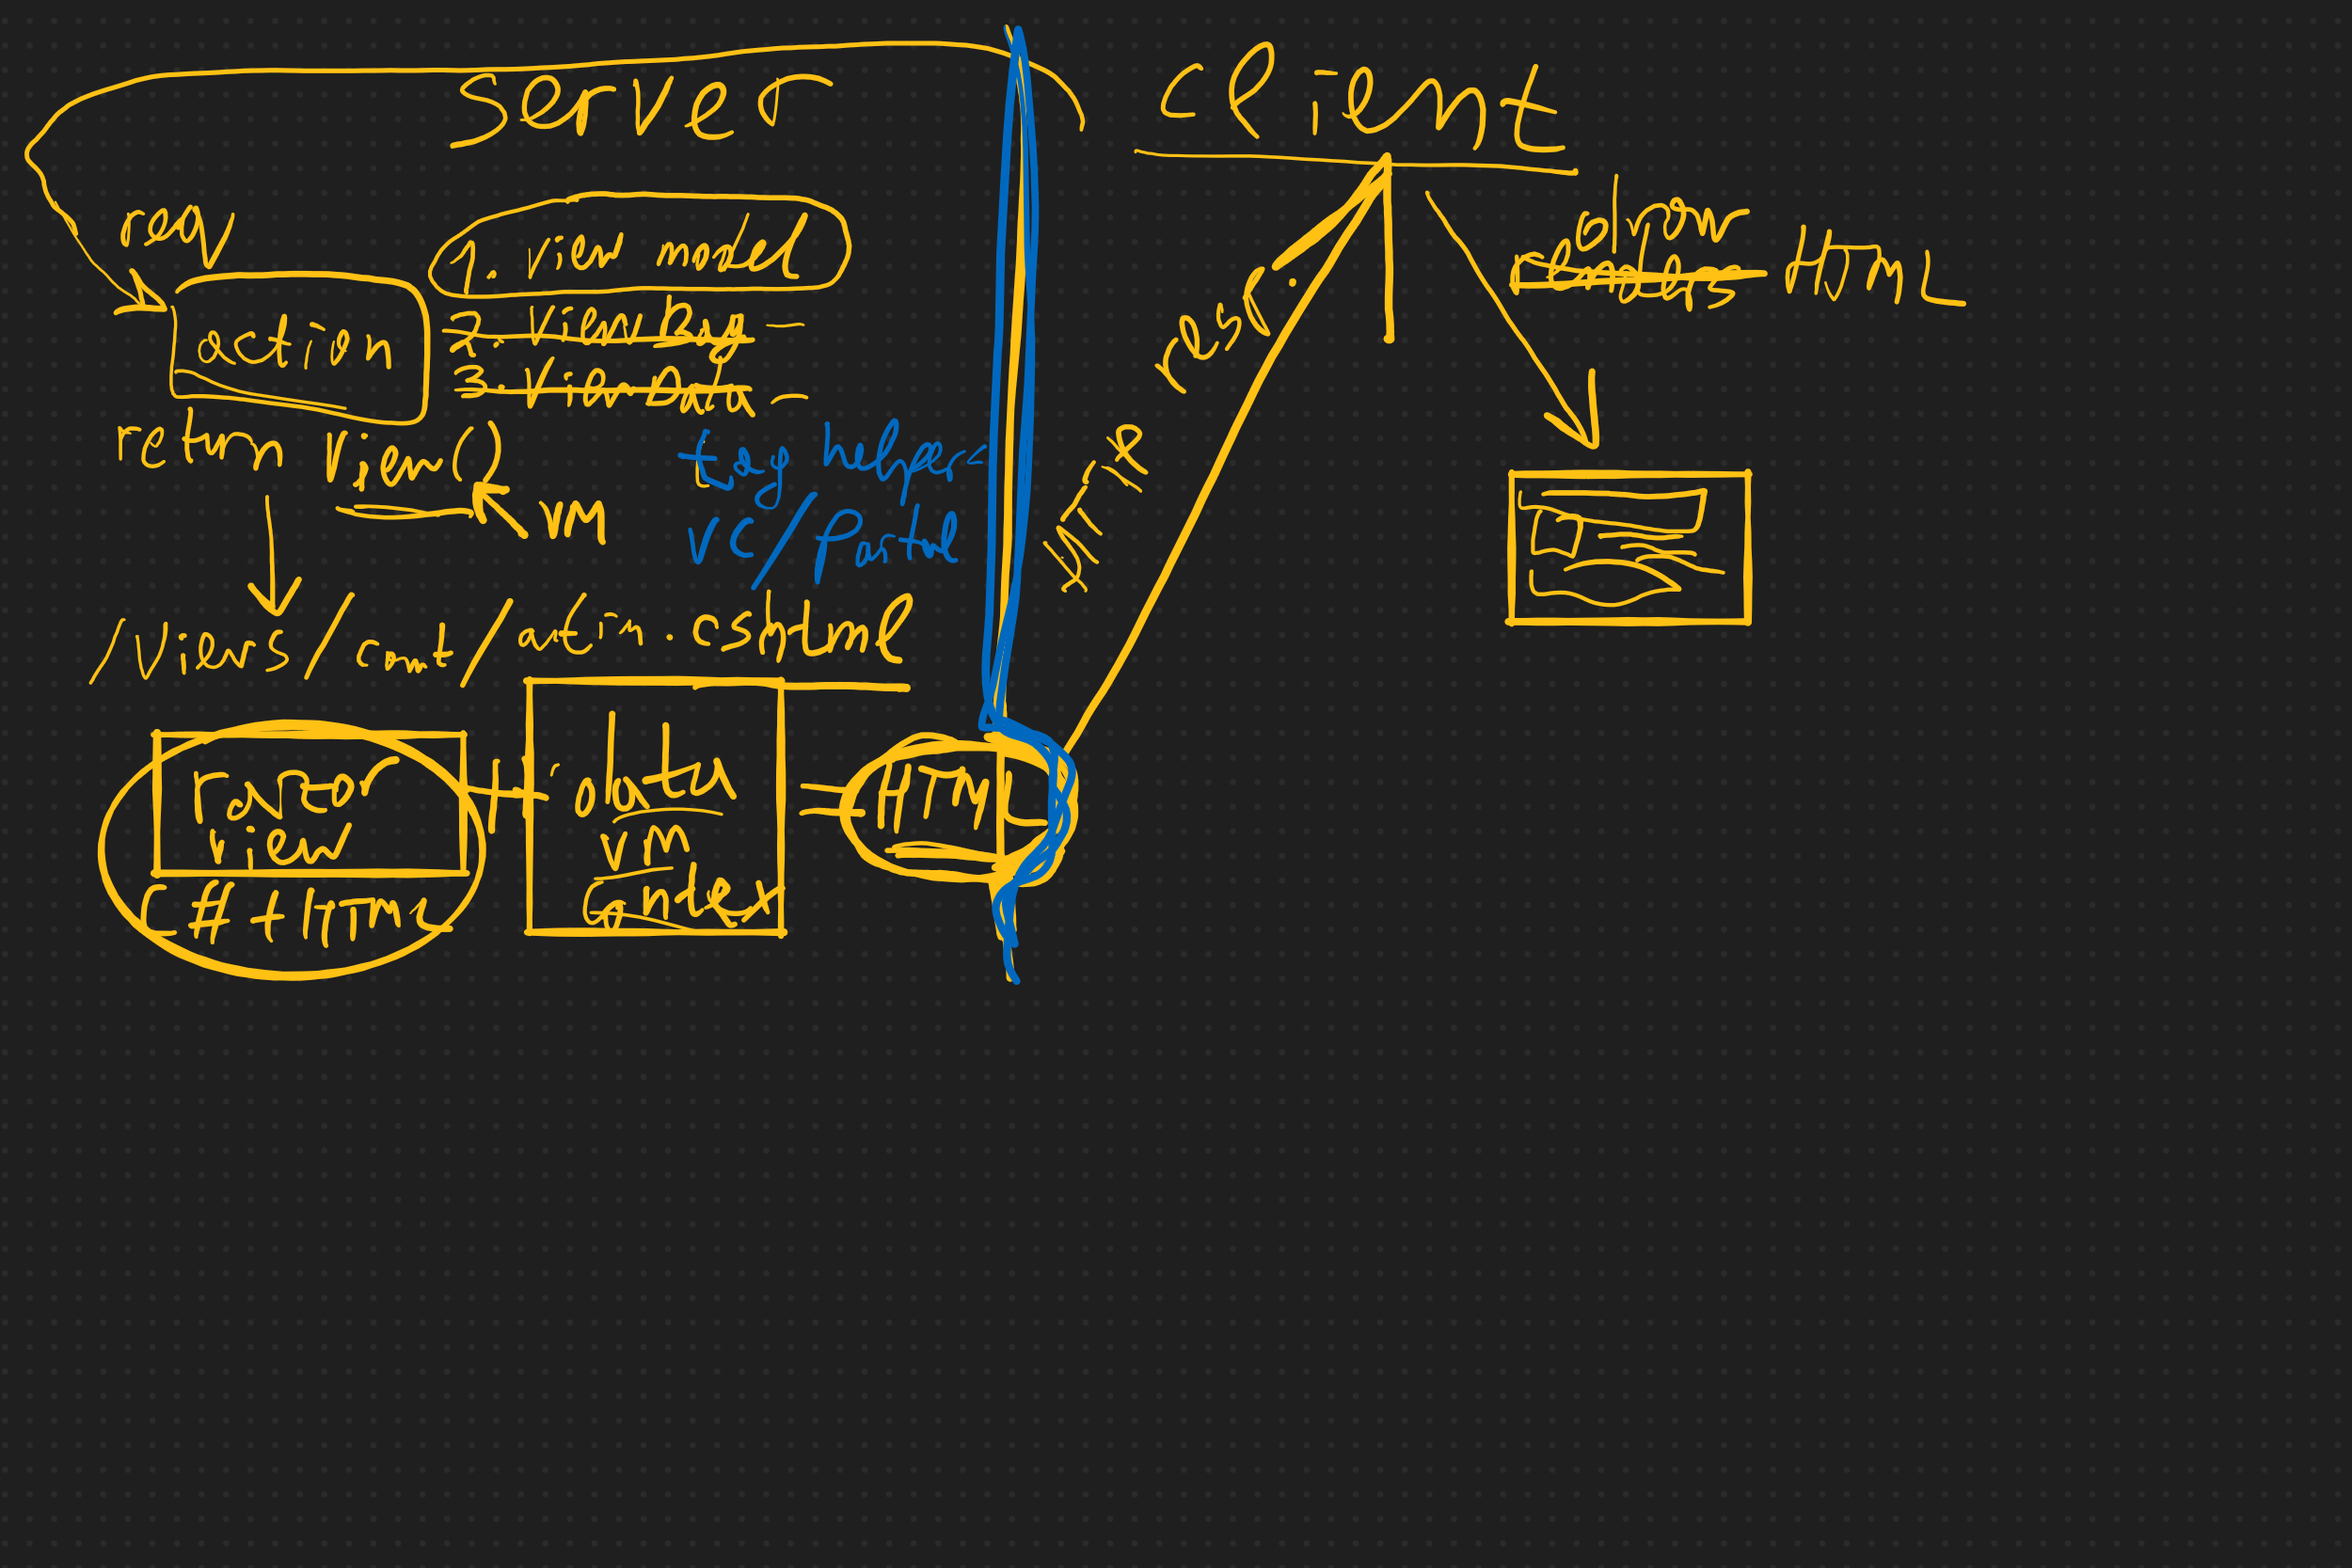 server
client
req
1. view model
2. View Bag -
3. View Data -
action
return View()
vm
tag helper
VC / Partial
/Views / cont / action.cshtml
razor
view
C# + HTML
+
data
vm
context
=
HTML
HTTP
resp.
draw
HTML